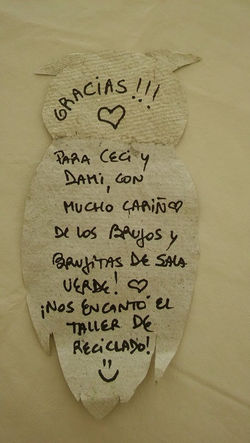 GRACIAS!!!
♡
PARA CECI y
DAMI, CON
MUCHO CARIÑ♡
DE LOS BRUJOS y
BRUJITAS DE SALA
VERDE! ♡
¡NOS ENCANTÓ EL
TALLER DE
RECICLADO!